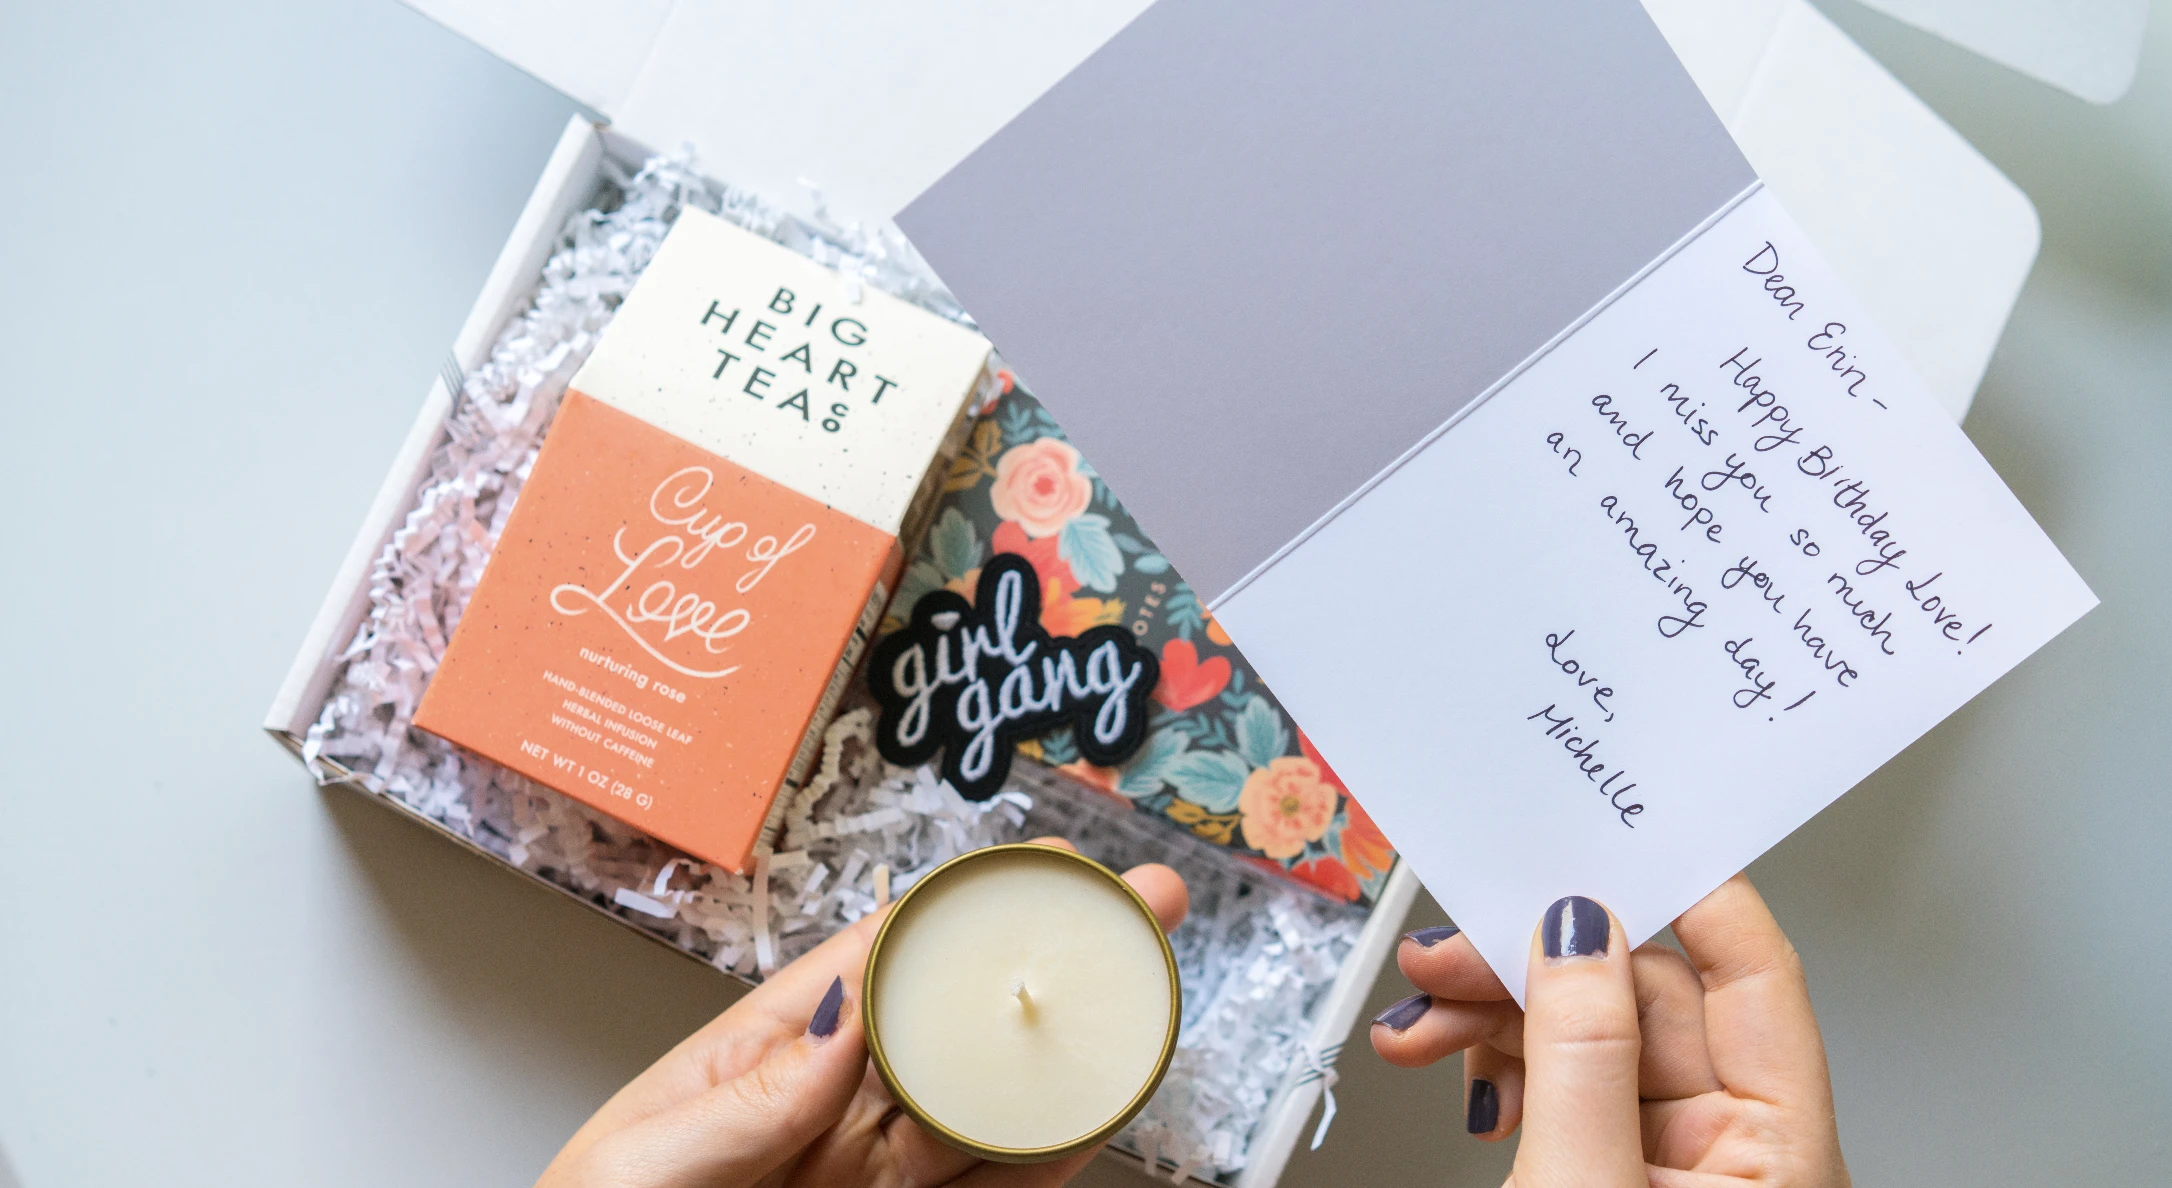 BIG
HEART
TEA CO
Cup of
Love
nurturing rose
HAND-BLENDED LOOSE LEAF
HERBAL INFUSION
WITHOUT CAFFEINE
NET WT 1 OZ (28 G)
girl
gang
Dear Erin -
Happy Birthday Love!
I miss you so much
and hope you have
an amazing day!
Love,
Michelle